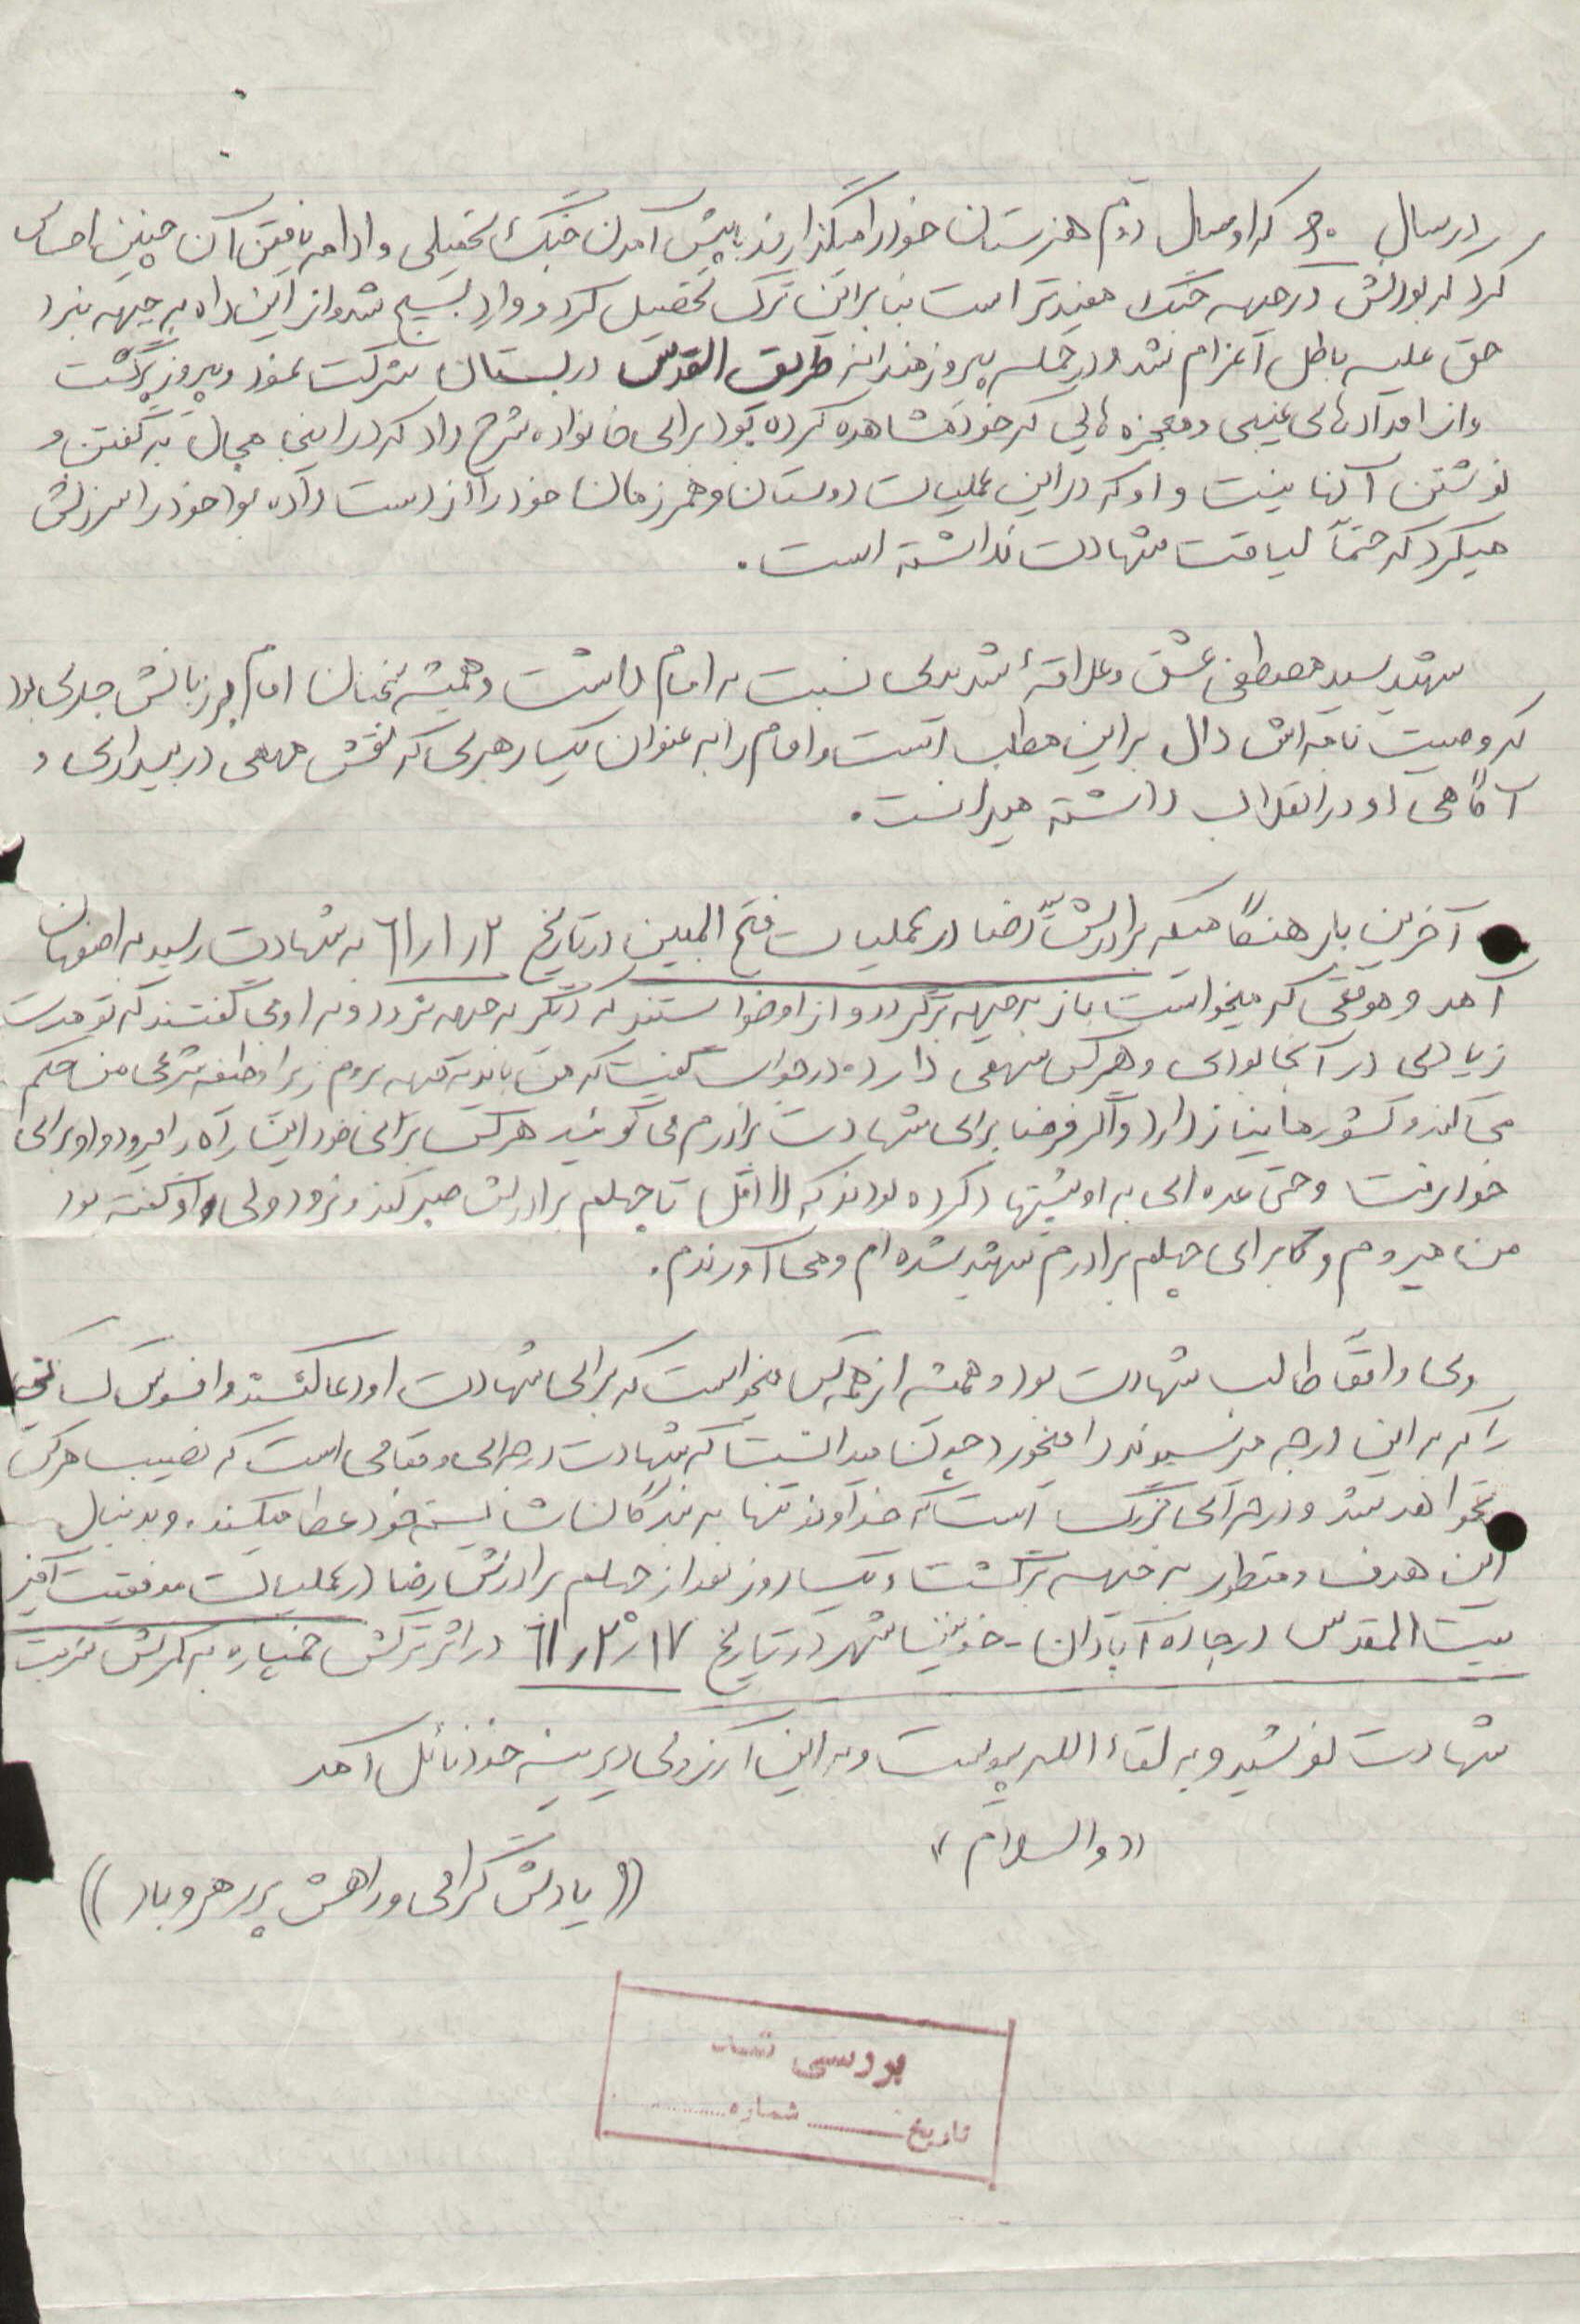 در سال ۶۰ که او سال دوّم هنرستان خود را میگذارند با پیش آمدن جنگ تحمیلی و ادامه یافتن آن چنین احساس
کرد که بودنش در جبهه جنگ مفیدتر است بنابراین ترک تحصیل کرد و وارد بسیج شد و از این راه به جبهه نبرد
حق علیه باطل اعزام شد و در حمله پیروزمندانه طریق القدس در بستان شرکت نمود و پیروز برگشت
و از امدادهای غیبی و معجزه هایی که خود مشاهده کرده بود برای خانواده شرح داد که در اینجا مجال به گفتن و
نوشتن آنها نیست و او که در این عملیات دوستان و همرزمان خود را از دست داده بود خود را سرزنش
میکرد که حتماً لیاقت شهادت نداشته است.
شهید سید مصطفی عشق و علاقهٔ شدیدی نسبت به امام داشت و همیشه سخنان امام بر زبانش جاری بود
که وصیت نامه اش دال بر این مطلب است و امام را به عنوان یک رهبری که نقش مهمی در بیداری و
آگاهی او در انقلاب داشته میدانست.
آخرین بار هنگامیکه برادرش رضا در عملیات فتح المبین در تاریخ ۶۱/۱/۲ به شهادت رسید به اصفهان
آمد و موقعی که میخواست باز به جبهه برگردد و از او خواستند که دیگر به جبهه نرود و به او می گفتند که تو مدت
زیادی در آنجا بودی و هر کس سهمی دارد. در جواب گفت که من باید به جبهه بروم زیرا وظیفه شرعی من حکم
می کند و کشور ما نیاز دارد و اگر فرضا برای شهادت برادرم می گوئید هر کس برای خود این راه را میرود و او برای
خود رفت و حتی عده ای به او پیشنهاد کرده بودند که لااقل تا چهلم برادرش صبر کند و نرود ولی او گفته بود
من میروم و برای چهلم برادرم شهید شده ام و می آورندم.
وی واقعاً طالب شهادت بود و همیشه از همه کس میخواست که برای شهادت او دعا کنند و افسوس کسانی
را که به این درجه میرسیدند را میخورد چون میدانست که شهادت درجه ای و مقامی است که نصیب هر کس
نخواهد شد و درجه ای بزرگ است که خداوند تنها به بندگان شایسته خود عطا میکند. و بدنبال
این هدف و منظور به جبهه برگشت و یک روز بعد از چهلم برادرش رضا در عملیات موفقیت آمیز
بیت المقدس در جاده آبادان - خونین شهر در تاریخ ۶۱/۲/۱۷ در اثر ترکش خمپاره به کمرش شربت
شهادت نوشید و به لقاء الله پیوست و به این آرزوی دیرینه خود نائل آمد
«والسلام»
((یادش گرامی و راهش پر رهرو باد))
بررسی شد
تاریخ .......... شماره ..........